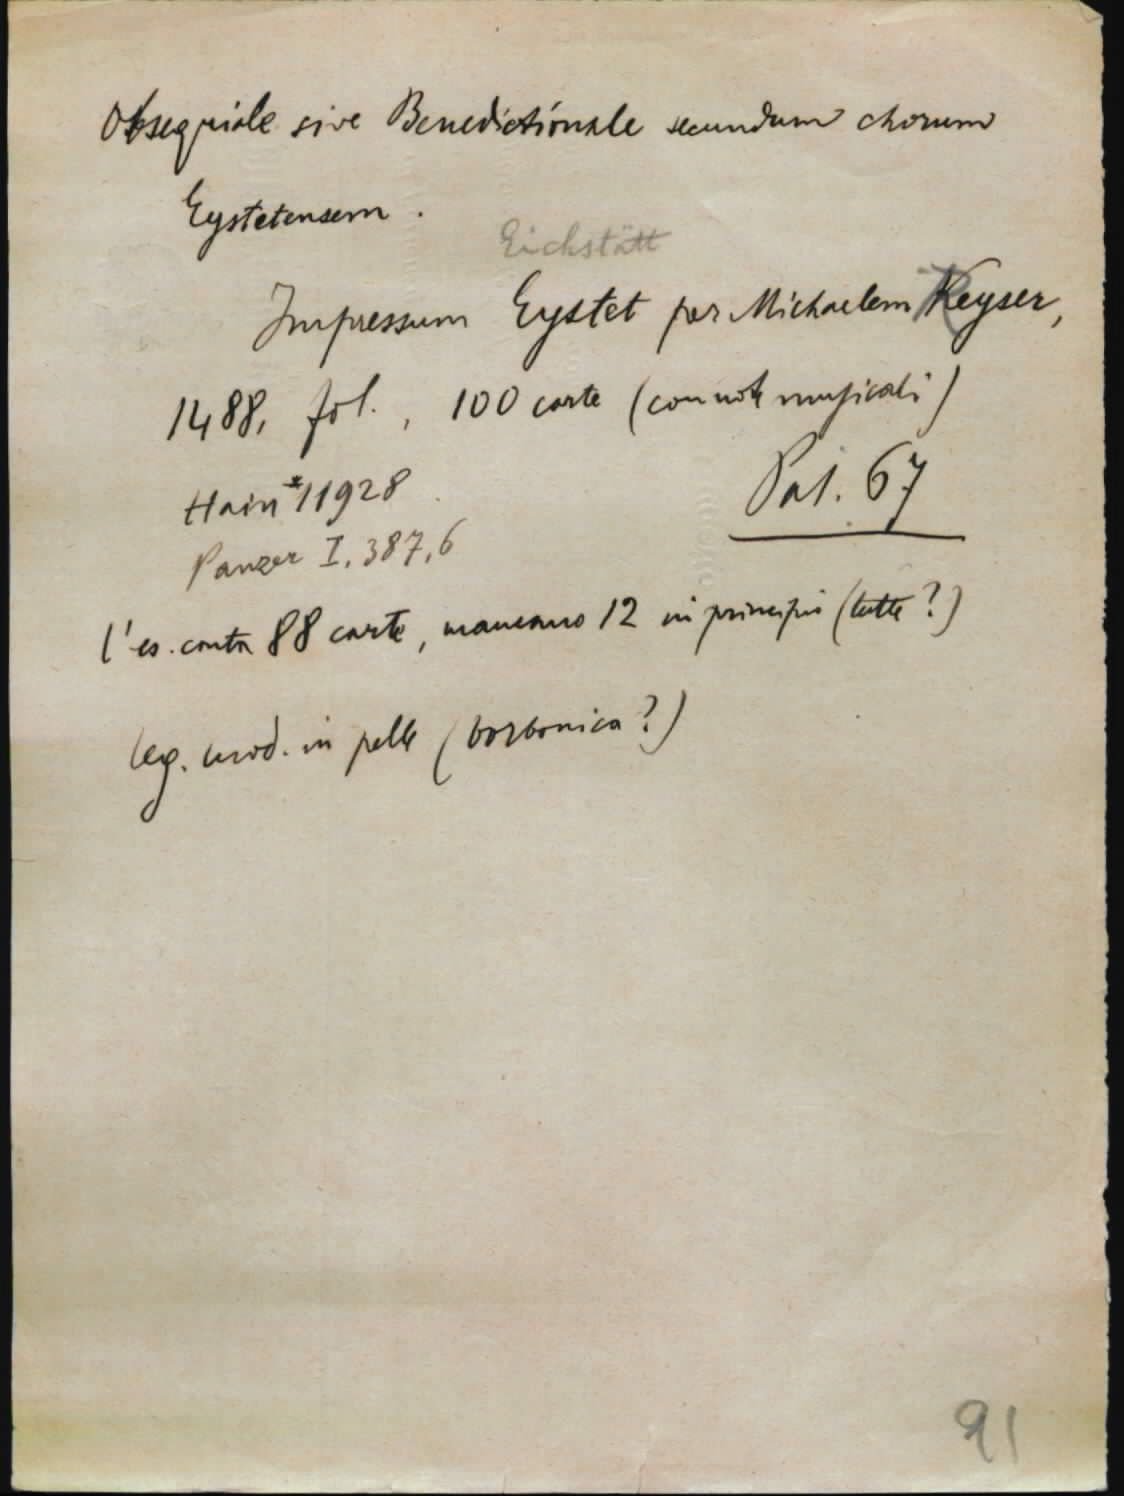 Obsequiale sive Benedictionale secundum chorum
Eystetensem.
Eichstätt
Impressum Eystet per Michaelem Reyser,
1488, fol., 100 carte (con note musicali)
Hain *11928
Pal. 67
Panzer I, 387,6
l'es. conta 88 carte, mancano 12 in principio (tutte?)
leg. mod. in pelle (borbonica?)
91